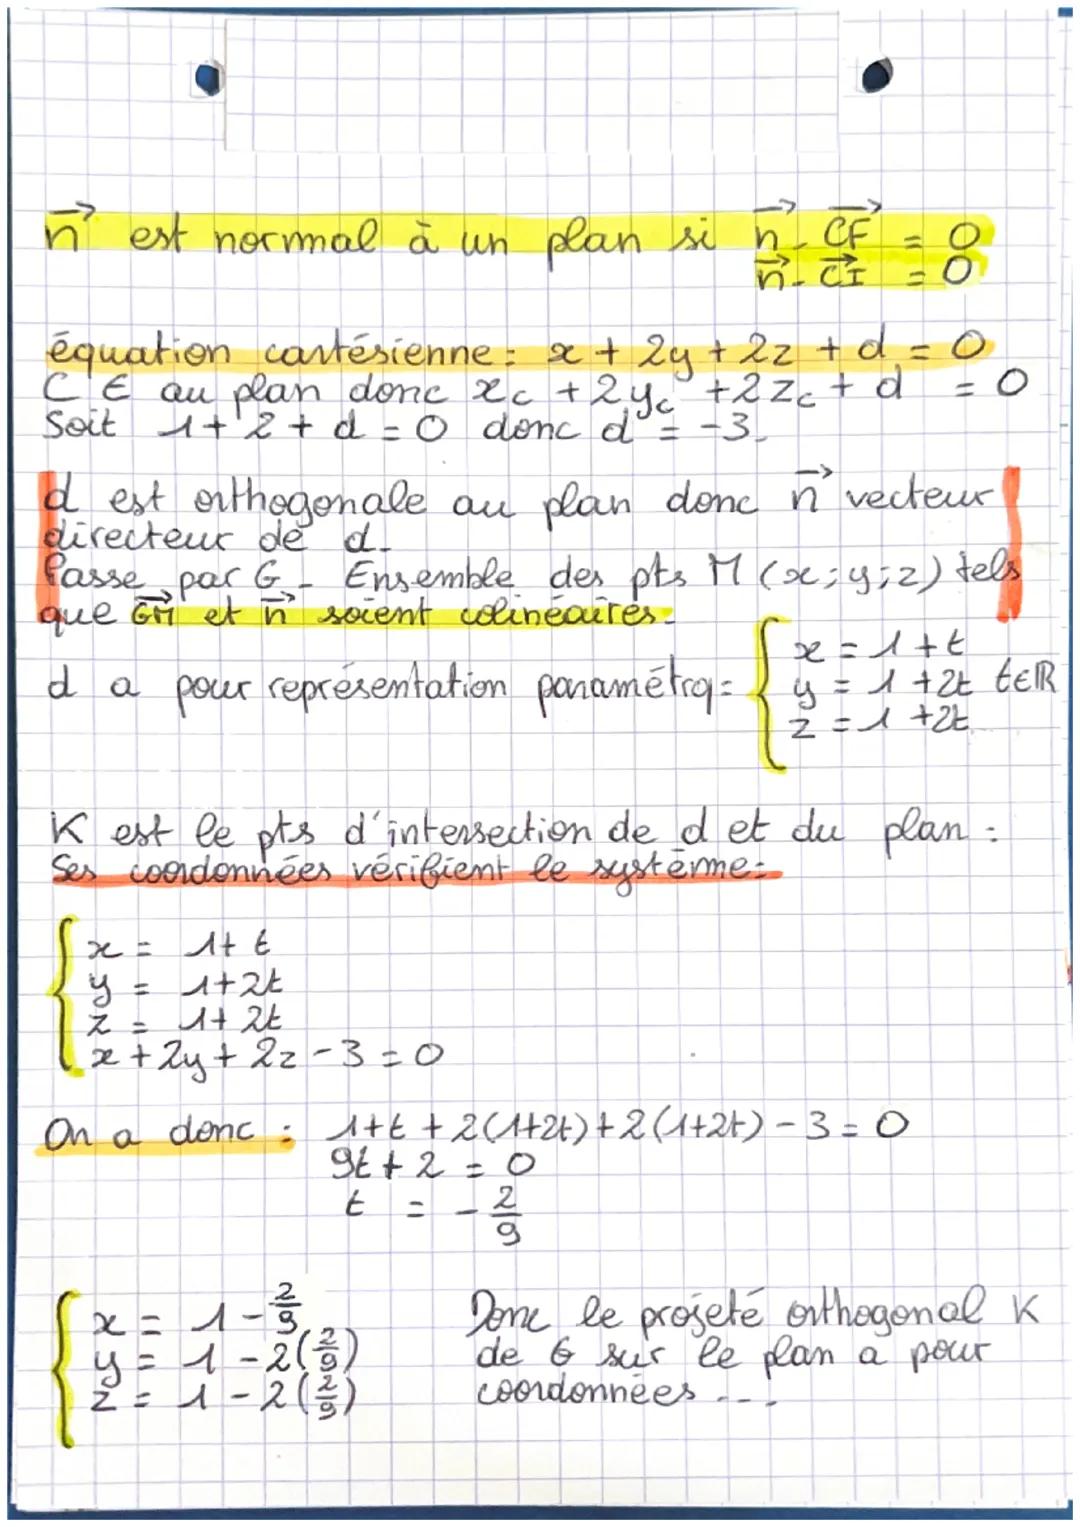 n⃗ est normal à un plan si n⃗ . CF⃗ = 0
n⃗ . CI⃗ = 0
équation cartésienne : x + 2y + 2z + d = 0
C ∈ au plan donc xc + 2yc + 2zc + d = 0
Soit 1 + 2 + d = 0 donc d = -3.
d est orthogonale au plan donc n⃗ vecteur
directeur de d.
Passe par G - Ensemble des pts M (x;y;z) tels
que GM⃗ et n⃗ soient colinéaires.
d a pour représentation paramétrq=
x = 1+t
y = 1+2t t∈ℝ
z = 1+2t
K est le pts d'intersection de d et du plan :
Ses coordonnées vérifient le système :
x = 1+t
y = 1+2t
z = 1+2t
x + 2y + 2z - 3 = 0
On a donc : 1+t + 2(1+2t) + 2(1+2t) - 3 = 0
9t + 2 = 0
t = - 2/9
x = 1 - 2/9
y = 1 - 2(2/9)
z = 1 - 2(2/9)
Donc le projeté orthogonal K
de G sur le plan a pour
coordonnées ...